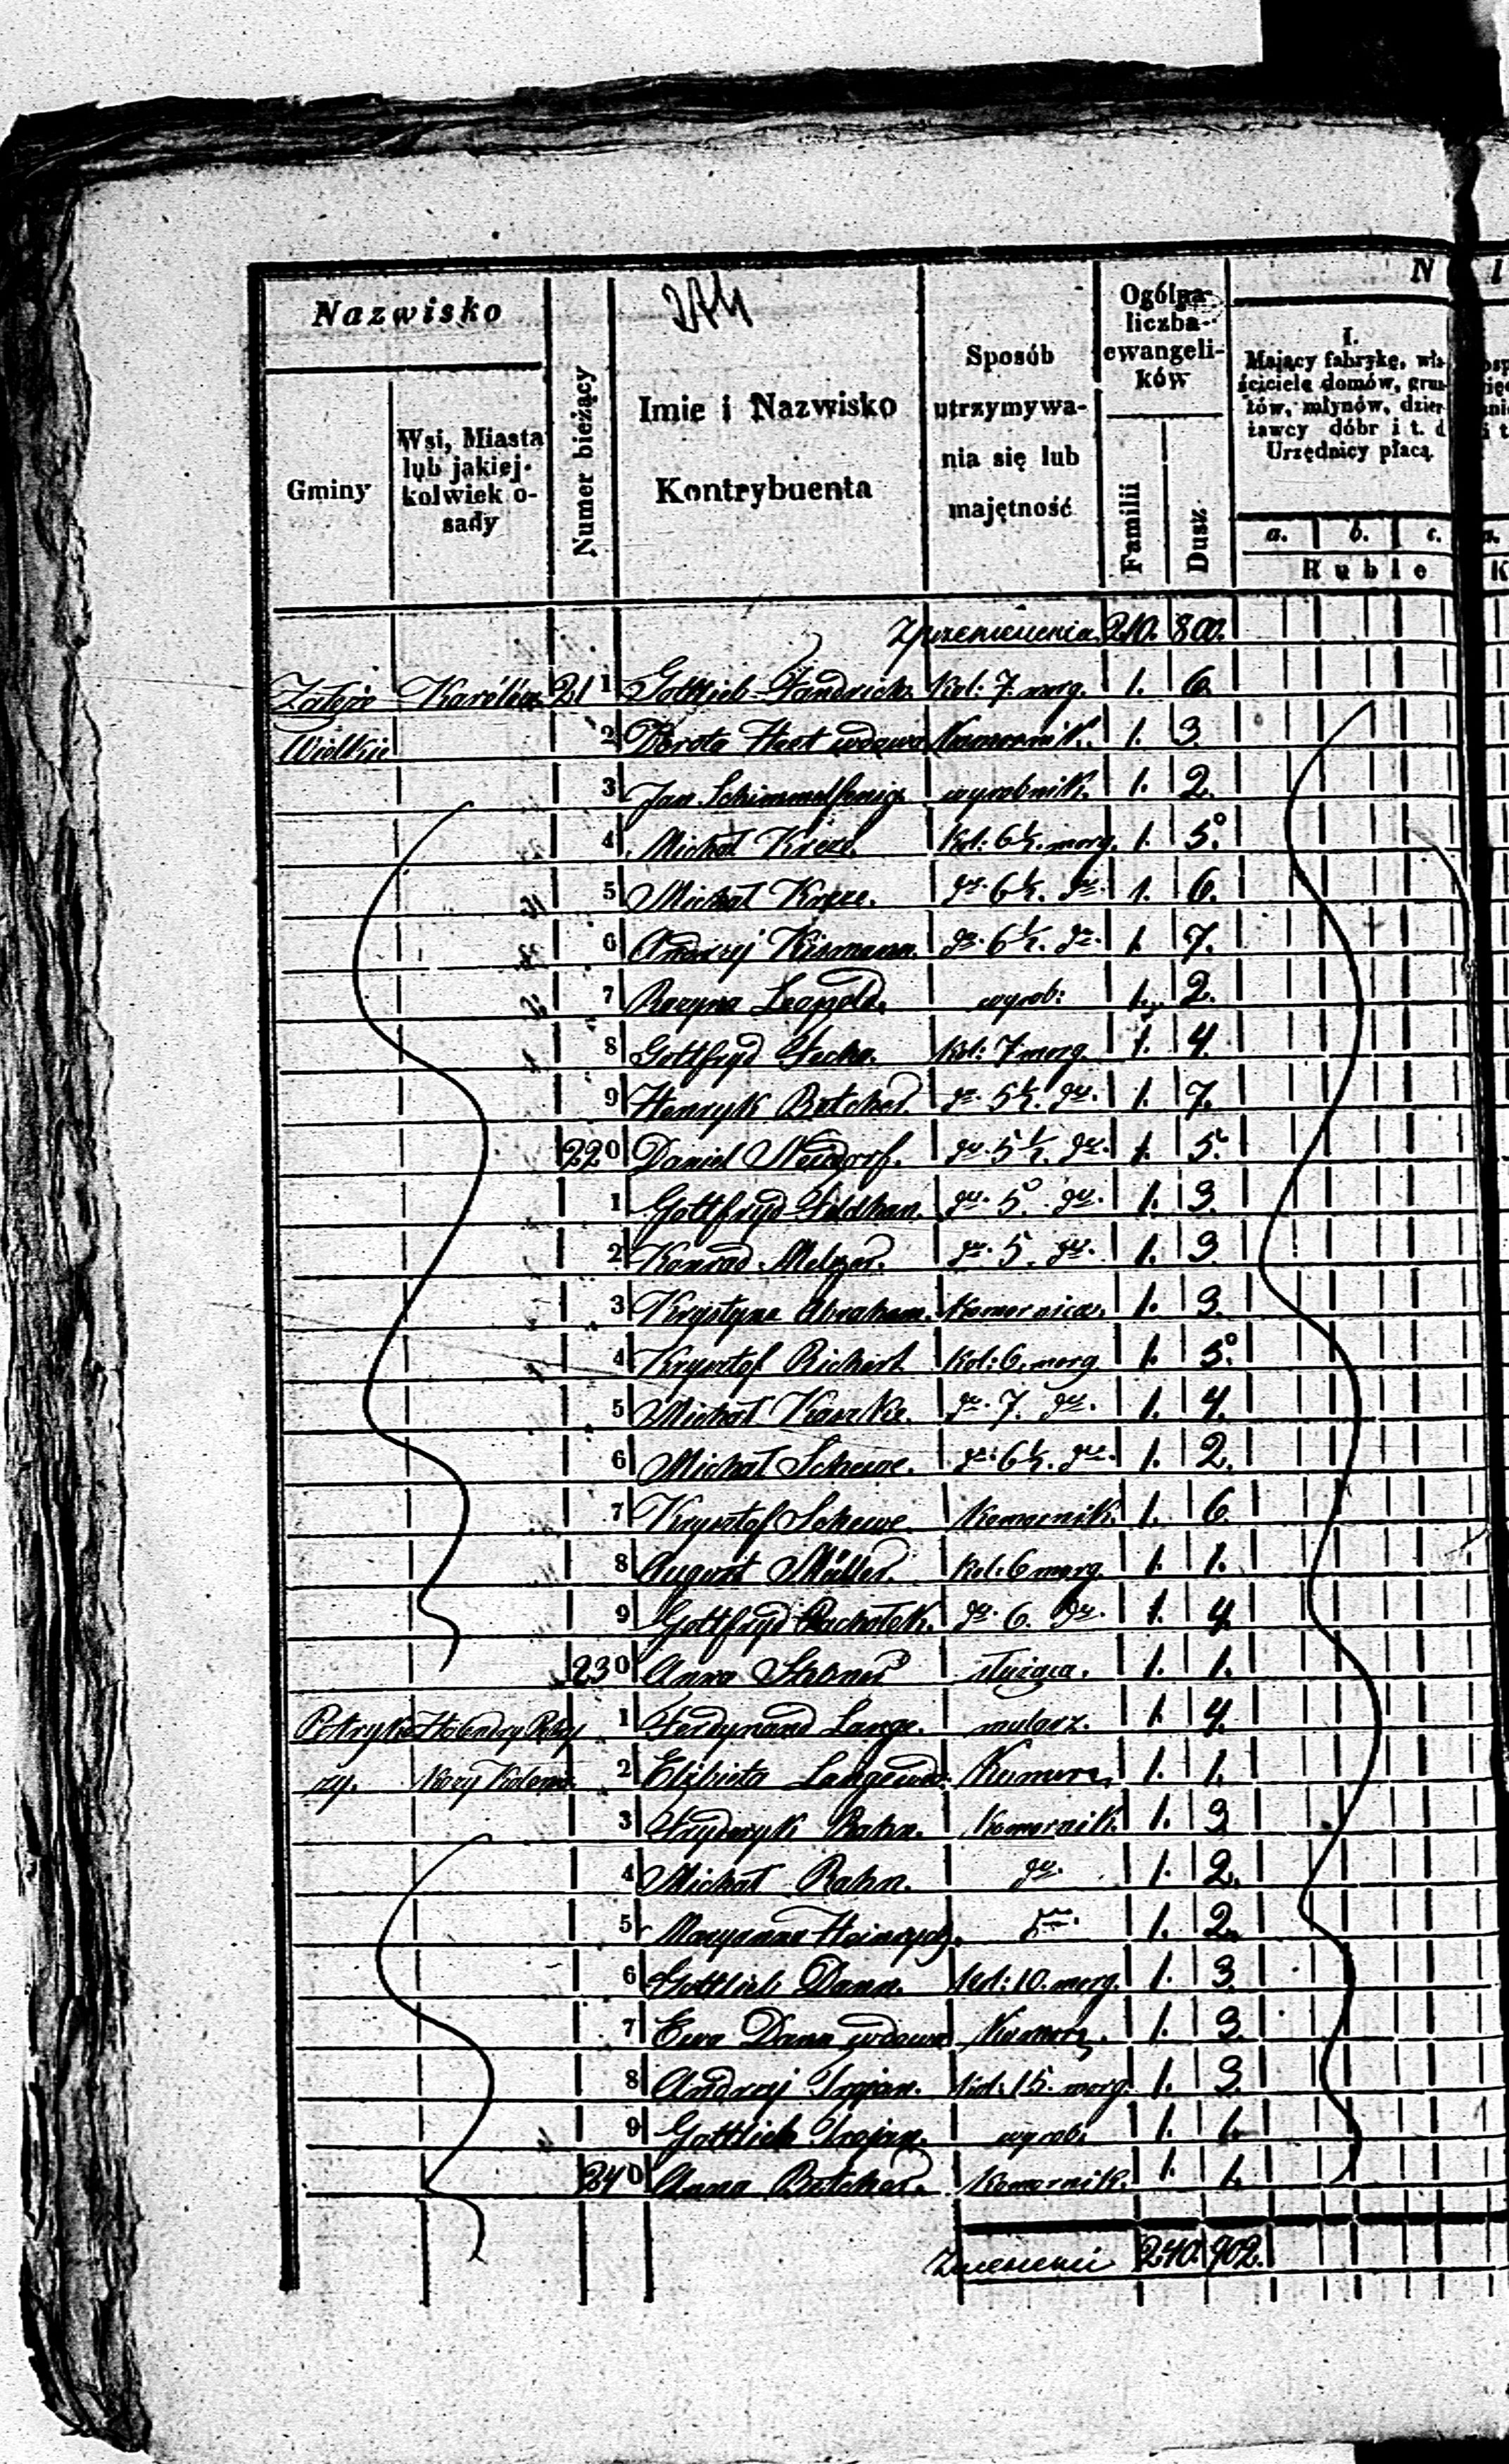 274
Nazwisko
Gminy
Wsi, Miasta
lub jakiej-
kolwiek o-
sady
Numer bieżący
Imie i Nazwisko
Kontrybuenta
Sposób
utrzymywa-
nia się lub
majętność
Ogólna
liczba
ewangeli-
ków
Familii
Dusz
N
I.
Mający fabrykę, wła-
ściciele domów, grun-
tów, młynów, dzier-
żawcy dóbr i t. d
Urzędnicy płacą
a. b. c.
Ruble
Z przeniesienia 210. 800.
Załęże Karólew 21 1 Gottlieb Kol: 7. morg. 1. 6.
Wielkie 2 Dorota Hert wdowa Komornik. 1. 3.
3 Jan Schimmelfenig wyrobnik. 1. 2.
4 Michał Kreze. Kol: 6½. morg. 1. 5.
5 Michał Kreze. do. 6½. do. 1. 6.
6 Andrzej Kismann. do. 6½. do. 1. 7.
7 Rozyna Leopold. wyrob: 1. 2.
8 Gottfryd Kol: 7 morg. 1. 4.
9 Henryk Botcher. do. 5½. do. 1. 7.
220 Daniel Neudorf. do. 5½. do. 1. 5.
1 Gottfryd Feldhan. do. 5. do. 1. 3.
2 Konrad Melzer. do. 5. do. 1. 3.
3 Krystyna Abraham. Komornica. 1. 3.
4 Krysztof Richert Kol: 6. morg 1. 5.
5 Michał Kaszke. do. 7. do. 1. 4.
6 Michał Schewe. do. 6½. do. 1. 2.
7 Krysztof Schewe Komornik. 1. 6
8 August Müller. Kol: 6 morg 1. 1.
9 Gottfryd Pachołek. do. 6. do. 1. 4
230 Anna służąca. 1. 1.
1 Ferdynand Lange. mularz. 1. 4.
2 Elżbieta 1. 1.
3 Fryderyk Rahn. Komornik. 1. 3
4 Michał Rahn. do. 1. 2.
5 Maryanna 1. 2.
6 Gottlieb Dann. Kol: 10. morg. 1. 3
7 Ewa Dann wdowa 1. 3
8 Andrzej Trojan. Kol: 15. morg. 1. 3.
9 Gottlieb Trojan. wyrob. 1. 1.
240 Anna Botcher. Komornik. 1. 1.
240. 902.